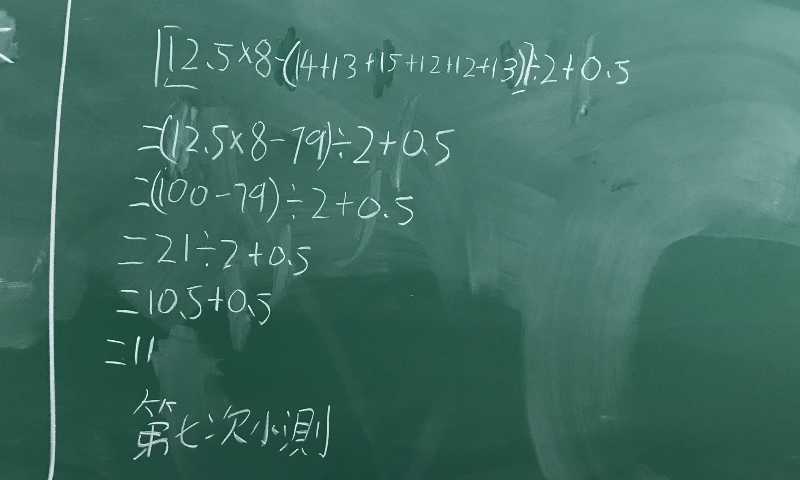 [12.5×8-(14+13+15+12+12+13)]÷2+0.5
=(12.5×8-79)÷2+0.5
=(100-79)÷2+0.5
=21÷2+0.5
=10.5+0.5
=11
第七次小測